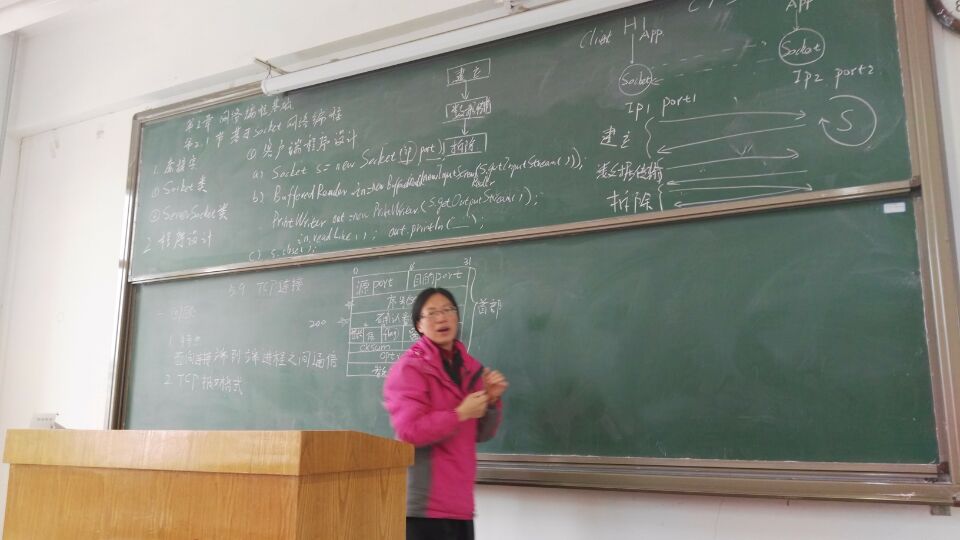 第2章 网络编程基础
第2.1节 基于Socket网络编程
1. 套接字
① Socket类
② ServerSocket类
2. 程序设计
① 客户端程序设计
a) Socket s = new Socket(ip, port);
b) BufferedReader in = new BufferedReader(new InputStreamReader(s.getInputStream()));
PrintWriter out = new PrintWriter(s.getOutputStream());
in.readLine(); out.println(__);
c) s.close();
建立
数据传输
拆除
Client H1
App
Socket
IP1 port1
App
Socket
IP2 port2
建立
数据传输
拆除
S
5.9 TCP连接
一. 问题
1. 特点
面向连接 端到端进程之间通信
2. TCP报文格式
0
31
源port
目的port
20B
cksum
首部